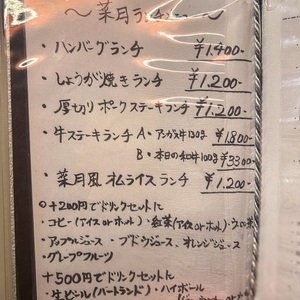 ～菜月ランチ～
・ハンバーグランチ ¥1.400-
・しょうが焼きランチ ¥1.200-
・厚切りポークステーキランチ ¥1.200-
・牛ステーキランチ A・アンガス牛130g ¥1.800-
B・本日の和牛100g ¥3300-
・菜月風オムライスランチ ¥1.200-
◎+200円でドリンクセットに
・コーヒー(アイスorホット)・紅茶(アイスorホット)・ウーロン茶
・アップルジュース・ブドウジュース、オレンジジュース
・グレープフルーツ
+500円でドリンクセットに
・生ビール(ハートランド)・ハイボール